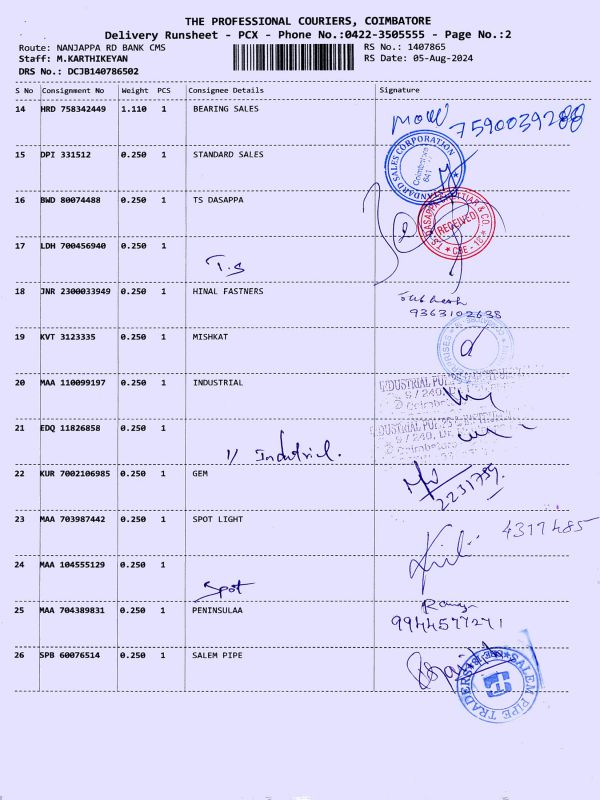 THE PROFESSIONAL COURIERS, COIMBATORE
Delivery Runsheet - PCX - Phone No.:0422-3505555 - Page No.:2
Route: NANJAPPA RD BANK CMS
RS No.: 1407865
Staff: M.KARTHIKEYAN
RS Date: 05-Aug-2024
DRS No.: DCJB140786502
S No Consignment No Weight PCS Consignee Details Signature
14 HRD 758342449 1.110 1 BEARING SALES
7590039288
15 DPI 331512 0.250 1 STANDARD SALES
STANDARD SALES CORPORATION
Coimbatore
641
16 BWD 80074488 0.250 1 TS DASAPPA
RECEIVED
CBE - 18
17 LDH 700456940 0.250 1
T.S
18 JNR 2300033949 0.250 1 HINAL FASTNERS
9363102638
19 KVT 3123335 0.250 1 MISHKAT
20 MAA 110099197 0.250 1 INDUSTRIAL
INDUSTRIAL
9 / 240,
21 EDQ 11826858 0.250 1
INDUSTRIAL
9 / 240,
1/ Industrial.
22 KUR 7002106985 0.250 1 GEM
2231759.
23 MAA 703987442 0.250 1 SPOT LIGHT
4317485
24 MAA 104555129 0.250 1
Spot
25 MAA 704389831 0.250 1 PENINSULAA
9944577271
26 SPB 60076514 0.250 1 SALEM PIPE
SALEM PIPE TRADERS